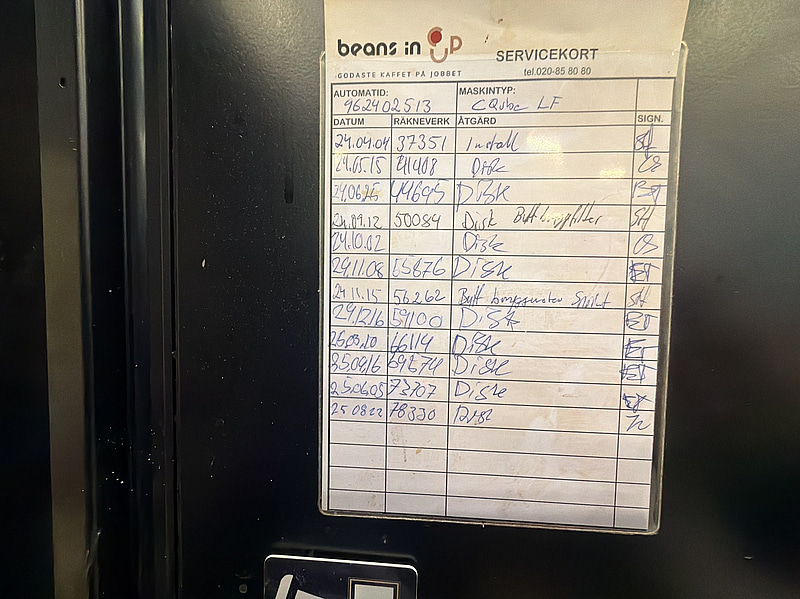 beans in up
GODASTE KAFFET PÅ JOBBET
SERVICEKORT
tel.020-85 80 80
AUTOMATID: MASKINTYP:
9624 02513 CQube LF
DATUM RÄKNEVERK ÅTGÄRD SIGN.
24.04.04 37351 Install
24.05.15 41408 Disk CS
24.06.25 44695 Disk
24.09.12 50084 Disk Bytt SH
24.10.02 Disk CS
24.11.08 55876 Disk ET
24.11.15 56262 Bytt SH
24.12.16 59100 Disk ET
25.03.10 66114 Disk ET
25.04.16 69874 Disk ET
25.06.05 73707 Diske
25 08 22 78330 Disk